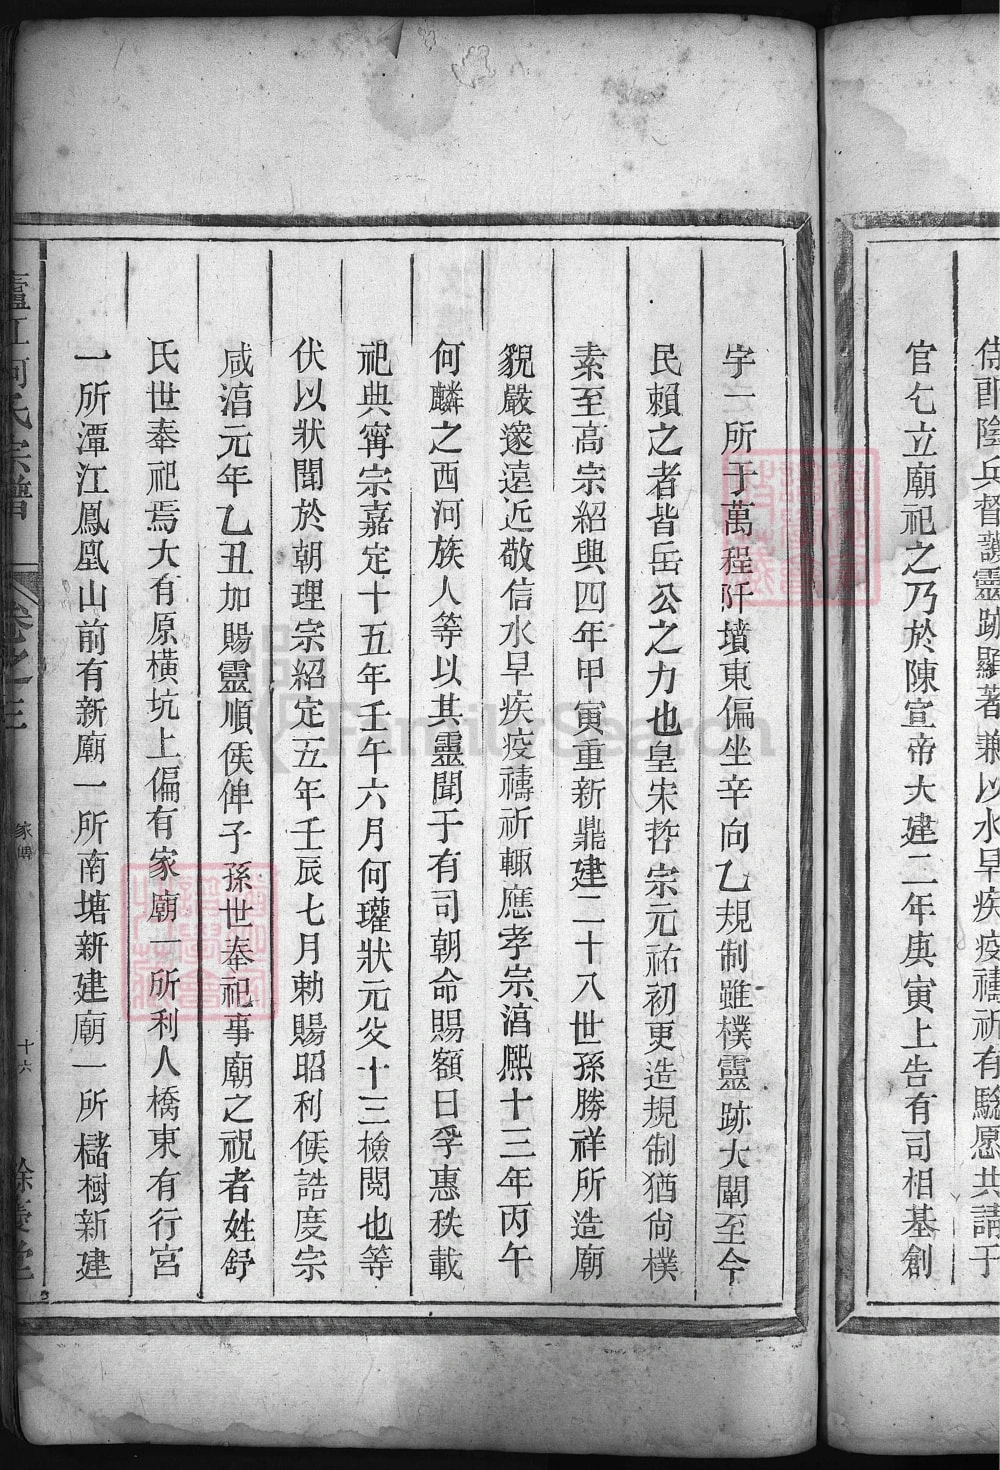 侍郎陰兵督護靈跡顯著兼以水旱疾疫禱祈有驗愿共請于
官乞立廟祀之乃於陳宣帝大建二年庚寅上告有司相基創
宇一所于萬程阡墳東偏坐辛向乙規制雖樸靈跡大闡至今
民賴之者皆岳公之力也皇宋哲宗元祐初更造規制猶尙樸
素至高宗紹興四年甲寅重新鼎建二十八世孫勝祥所造廟
貌嚴邃遠近敬信水旱疾疫禱祈輙應孝宗淳熙十三年丙午
何麟之西河族人等以其靈聞于有司朝命賜額曰孚惠秩載
祀典寗宗嘉定十五年壬午六月何瓘狀元父十三檢閱也等
伏以狀聞於朝理宗紹定五年壬辰七月勅賜昭利候誥度宗
咸淳元年乙丑加賜靈順侯俾子孫世奉祀事廟之祝者姓舒
氏世奉祀焉大有原橫坑上偏有家廟一所利人橋東有行宮
一所潭江鳳凰山前有新廟一所南塘新建廟一所櫧樹新建
廬江何氏宗譜 卷之三 家傳 十六 餘慶堂
FamilySearch